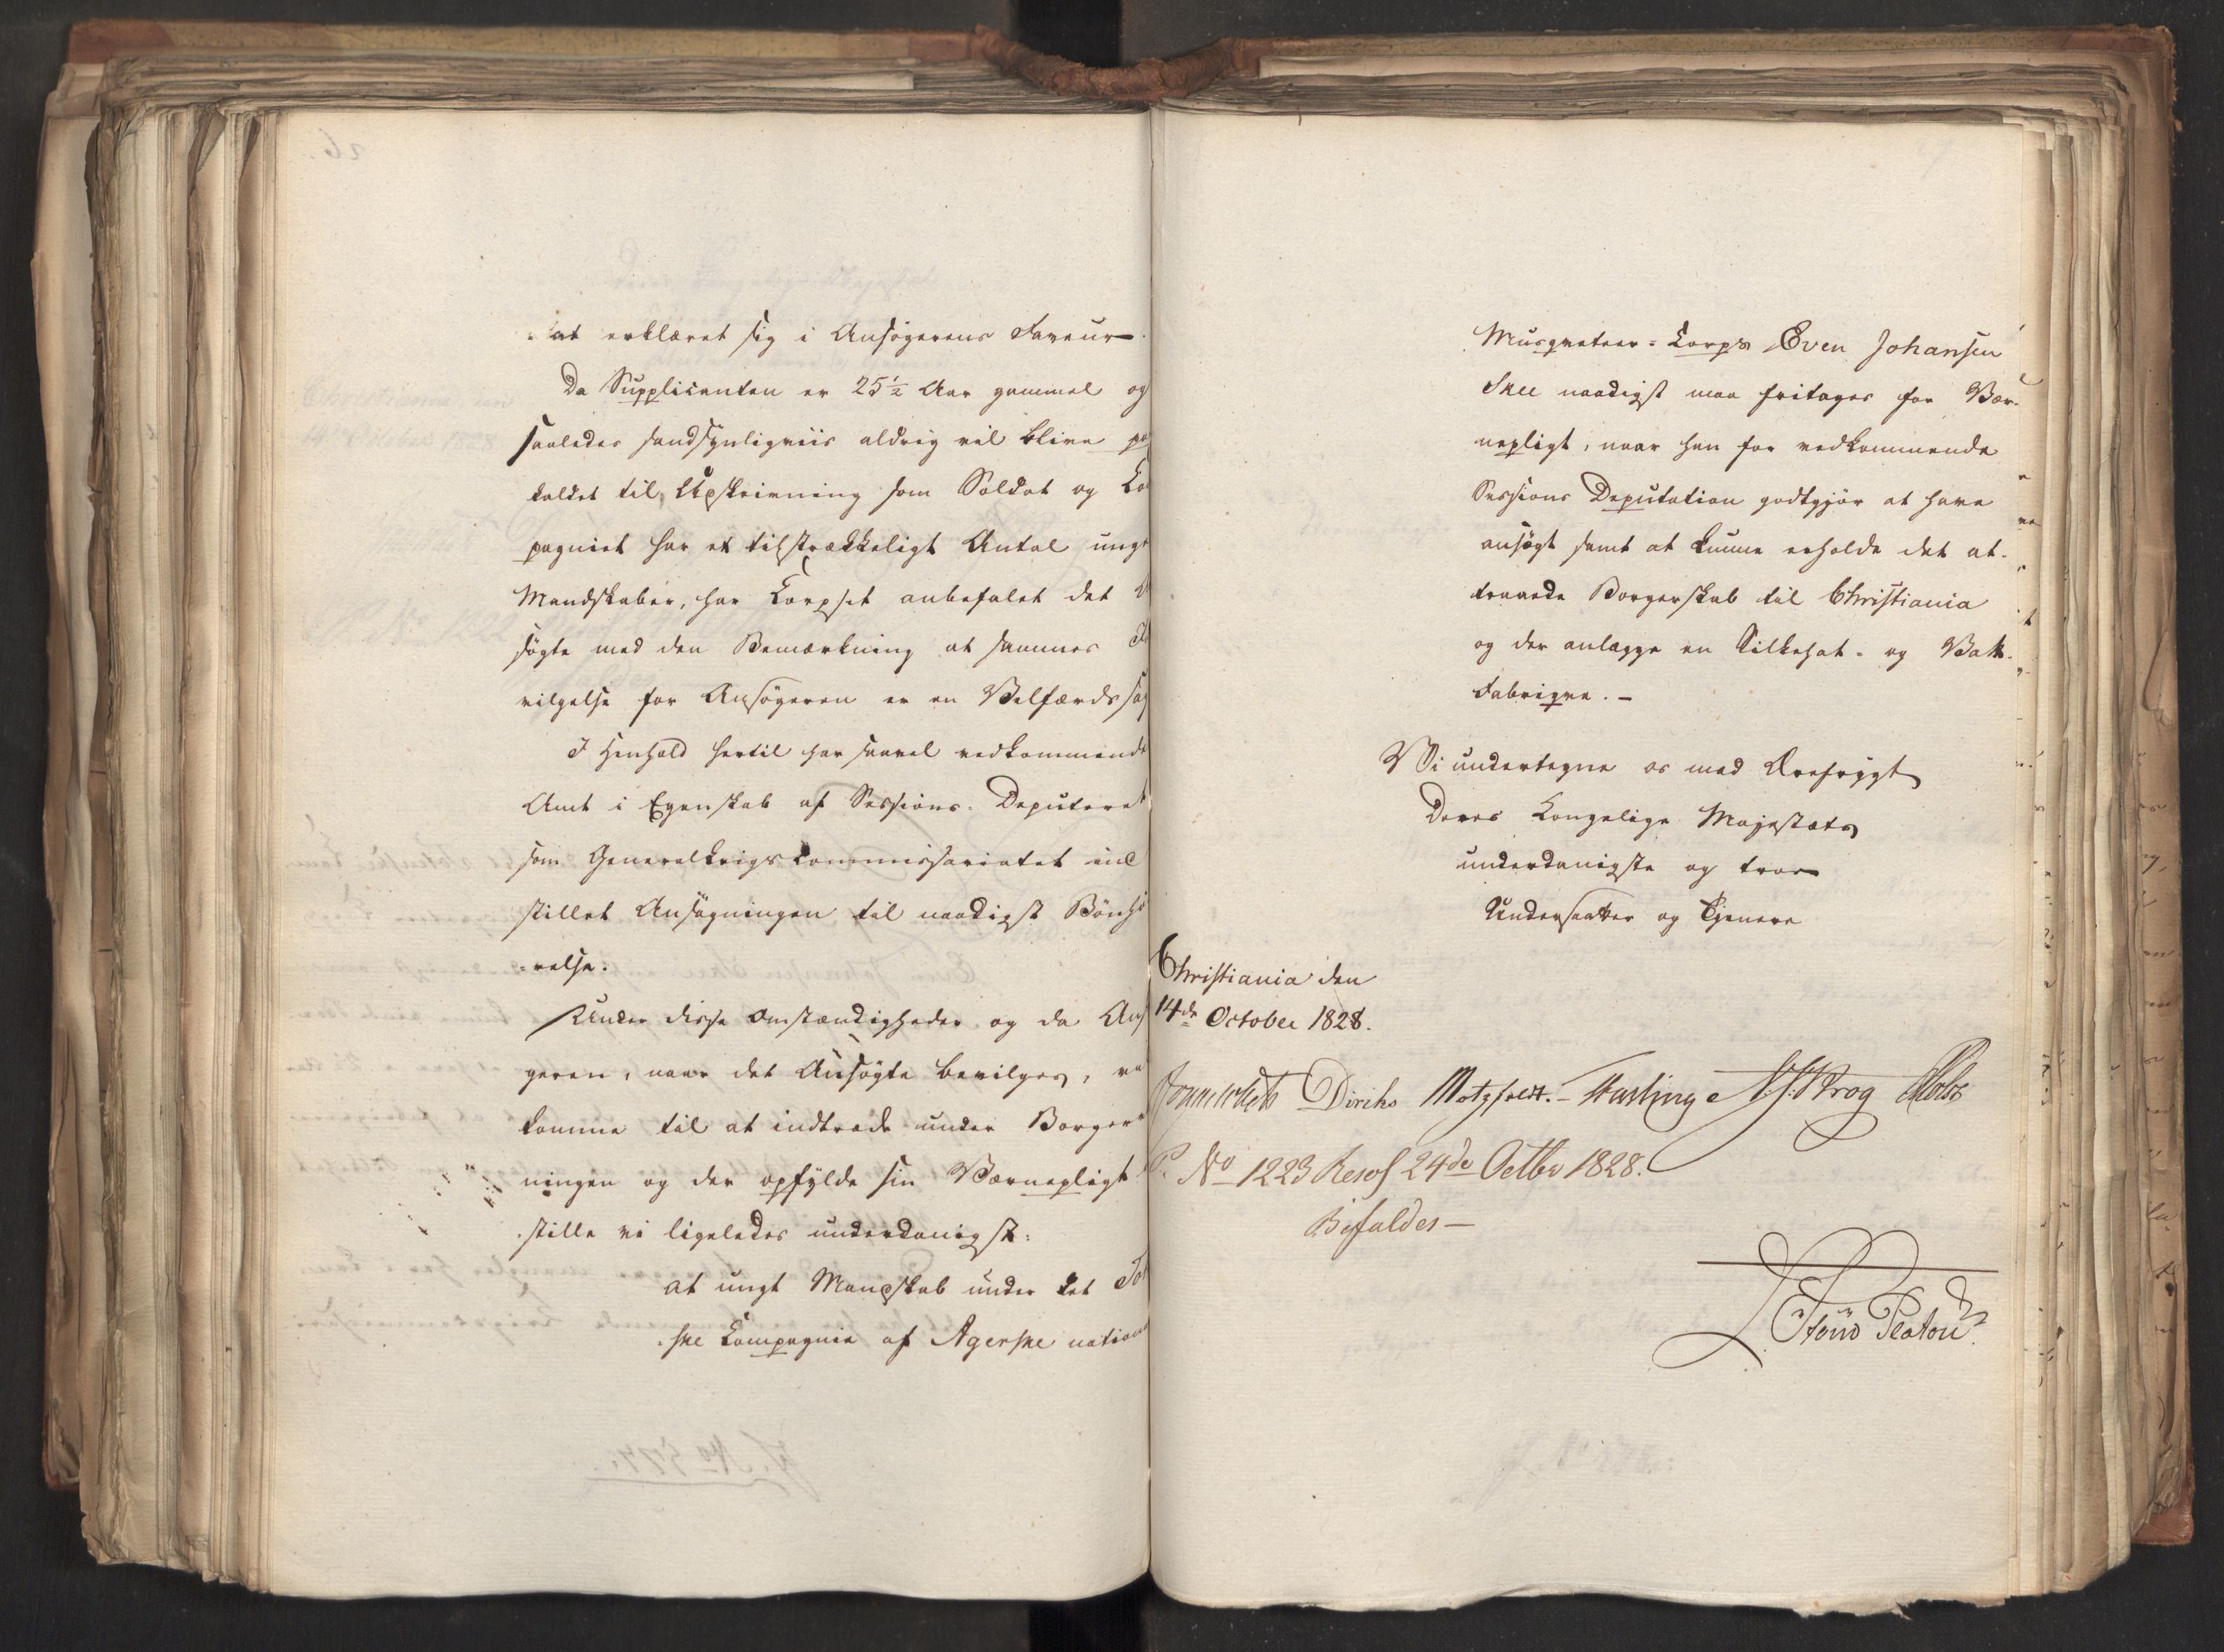 -tat erklæret sig i Ansøgerens Faveur.
Da Supplicanten er 25 1/2 Aar gammel og
saaledes sandsynligviis aldrig vil blive
kaldet til Udskrivning som Soldat og Co
pagniet har et tilstrækkeligt Antal unge
Mandskaber, har Corpset anbefalet det
søgte med den Bemærkning at sammes
vilgelse for Ansøgeren er en Velfærds sag
I Henhold hertil har saavel vedkommende
Amt i Egenskab af Sessions-Deputeret
som Generalkrigscommissariatet ind
stillet Ansøgningen til naadigst Bønhø
-relse.
Under disse Omstændigheder og da Ans
geren, naar det Ansøgte bevilges, vil
komme til at indtræde under Borgervæ
ningen og der opfylde sin Værnepligt
stille vi ligeledes underdanigst:
at ungt Mandskab under det
-ske Compagnie af Agerske nationa
Musqveteer-Corps Even Johansen
Skee naadigst maa fritages for Vær-
nepligt, naar han for vedkommende
Sessions Deputation godtgjør at have
ansøgt samt at kunne erholde det at-
traaede Borgerskab til Christiania
og der anlægge en Silkehat- og Vatt-
Fabriqve. -
Vi undertegne os med Ærefrygt
Deres Kongelige Majestæts
underdanigste og troe
Undersaatter og Tjenere
Christiania den
14de October 1828.
Diriks Motzfeldt. Fasting Krog Holst
P. No 1223 Resol 24de Octbr 1828.
Bifaldes —
Platou